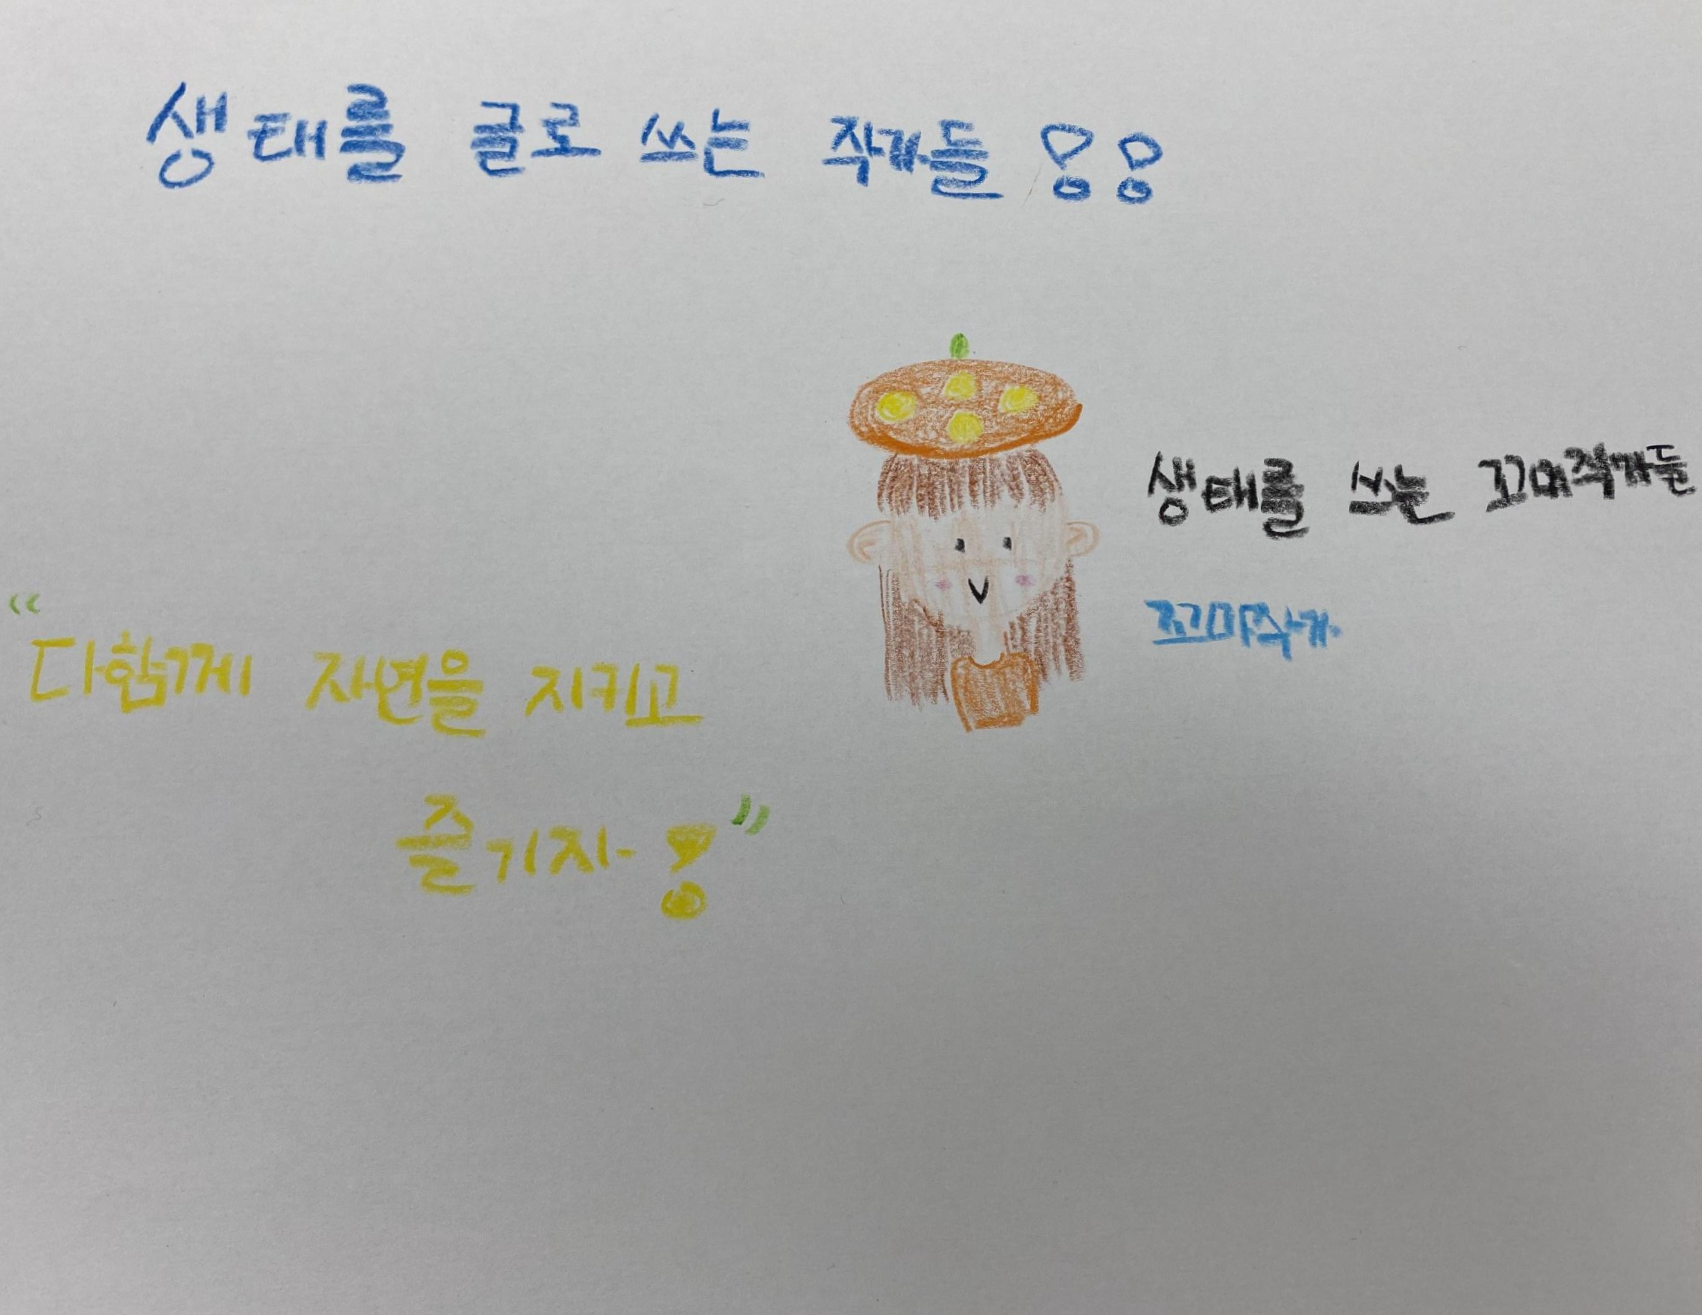 생태를 글로 쓰는 작가들!!
생태를 쓰는 꼬마작가들
꼬마작가
“다함께 자연을 지키고
즐기자!”